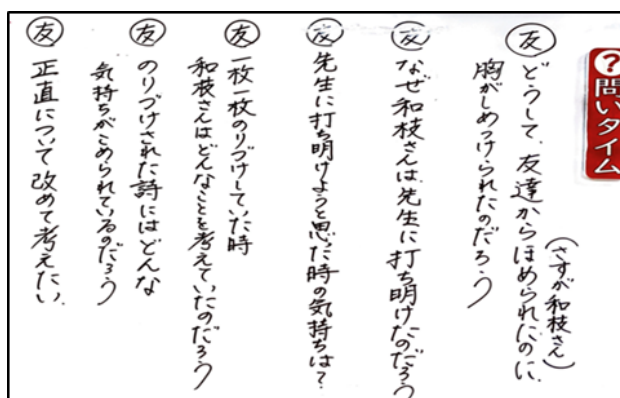 ?問いタイム
(さすが和枝さん)
友 どうして、友達からほめられたのに、
胸がしめつけられたのだろう
友 なぜ和枝さんは、先生に打ち明けたのだろう
友 先生に打ち明けようと思った時の気持ちは?
友 一枚一枚のりづけしていた時
和枝さんはどんなことを考えていたのだろう
友 のりづけされた詩にはどんな
気持ちがこめられているのだろう
友 正直について改めて考えたい。